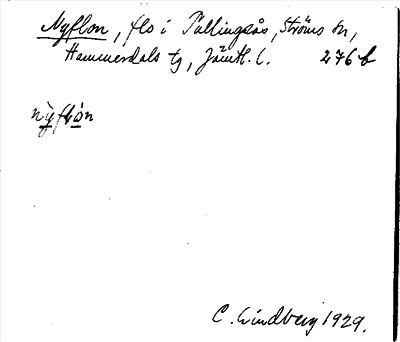 Nyflon, flo i Tullingsås, Ströms sn,
Hammerdals tg, Jämtl. l. 276 b
nỳflo̱n
C. Lindberg 1929.